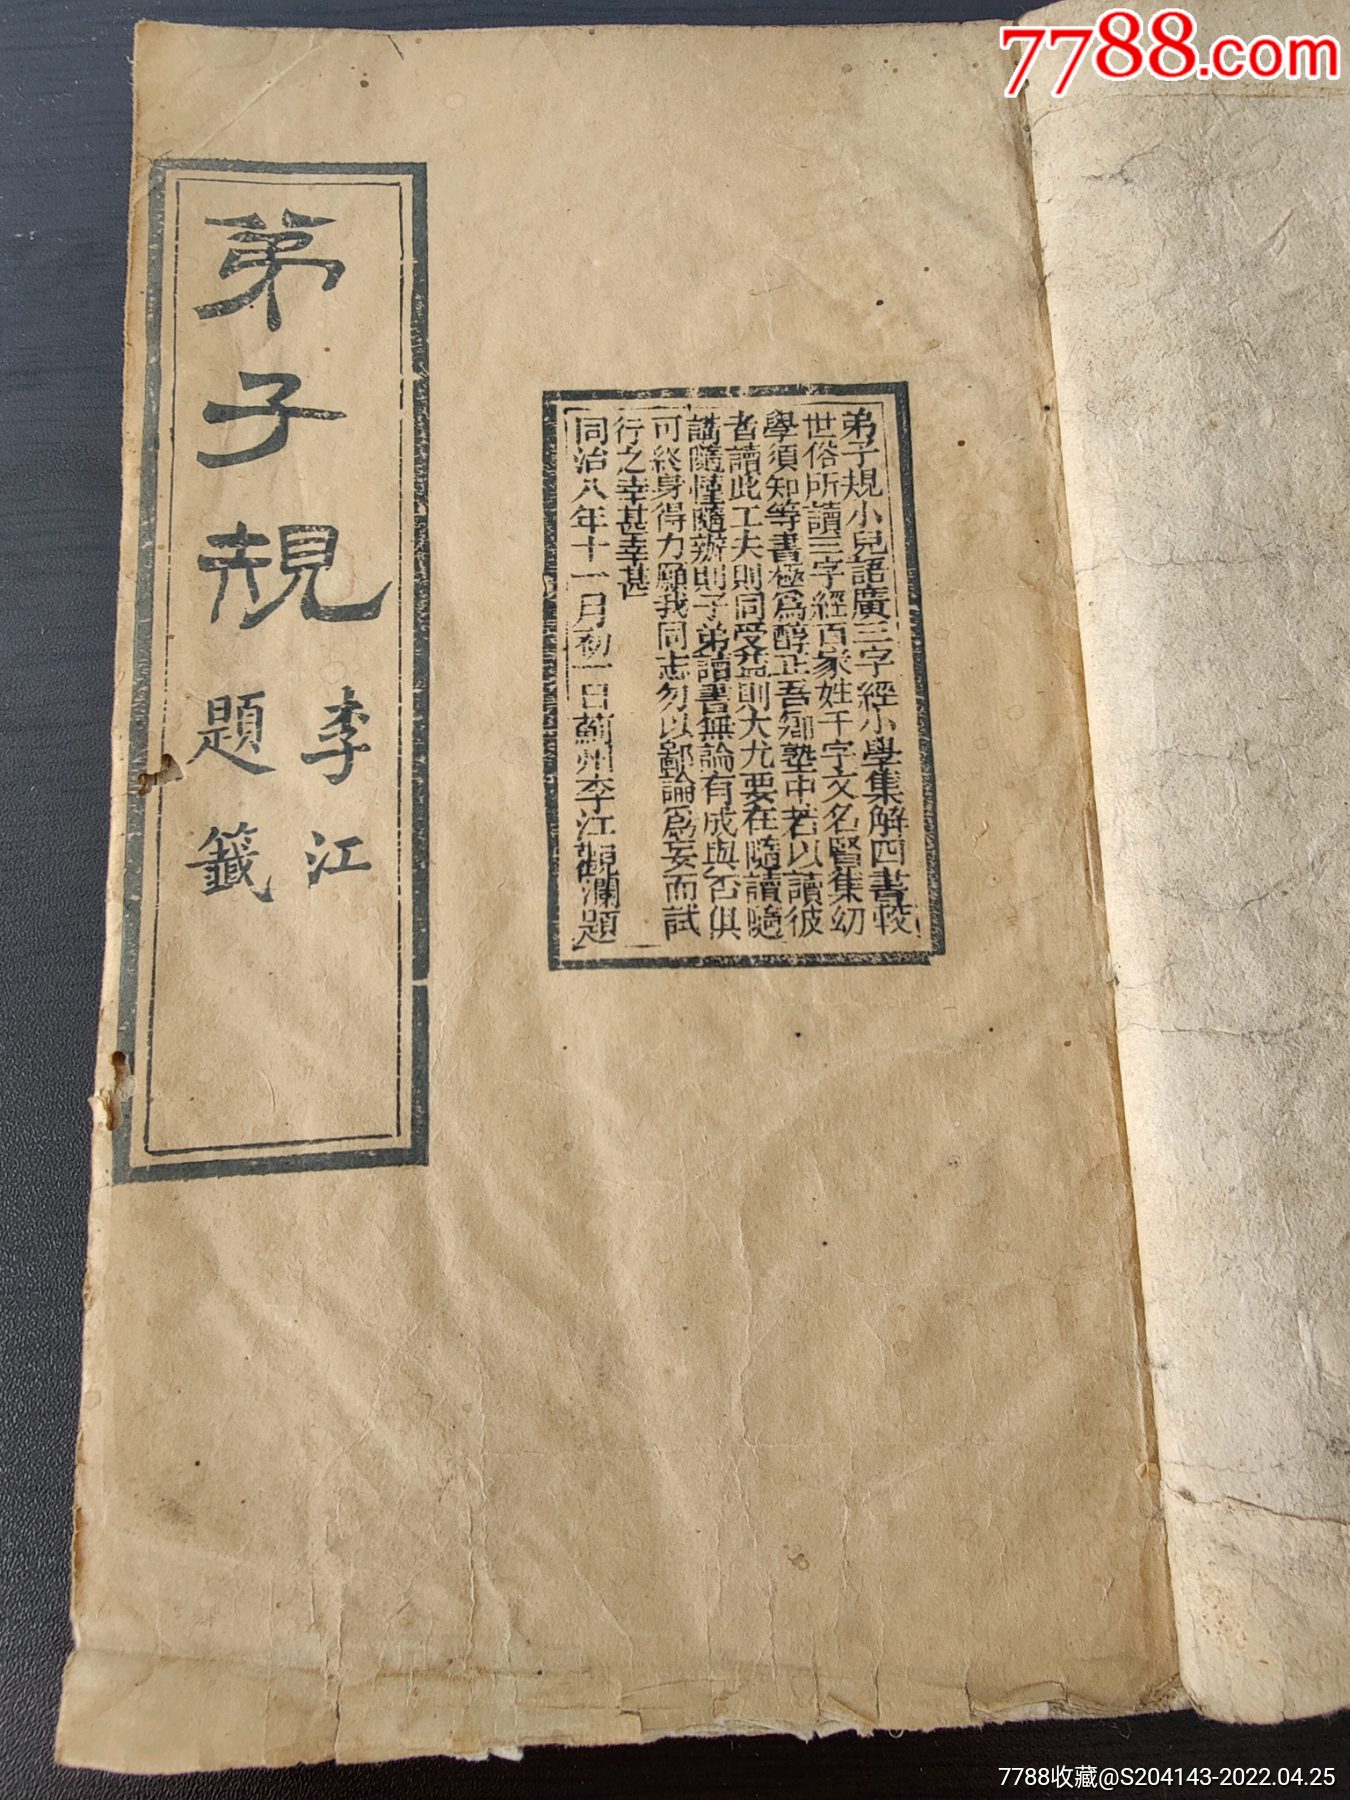 7788.com
弟子規小兒語廣三字經小學集解四書較
世俗所讀三字經百家姓千字文名賢集幼
學須知等書極為醇正吾鄉塾中若以讀彼
者讀此工夫則同受益則大尤要在隨讀隨
講隨懂隨辦則子弟讀書無論有成與否俱
可終身得力願我同志勿以鄙論爲妄而試
行之幸甚幸甚
同治八年十一月初一日薊州李江觀瀾題
弟子規
李江
題籤
7788收藏@S204143-2022.04.25